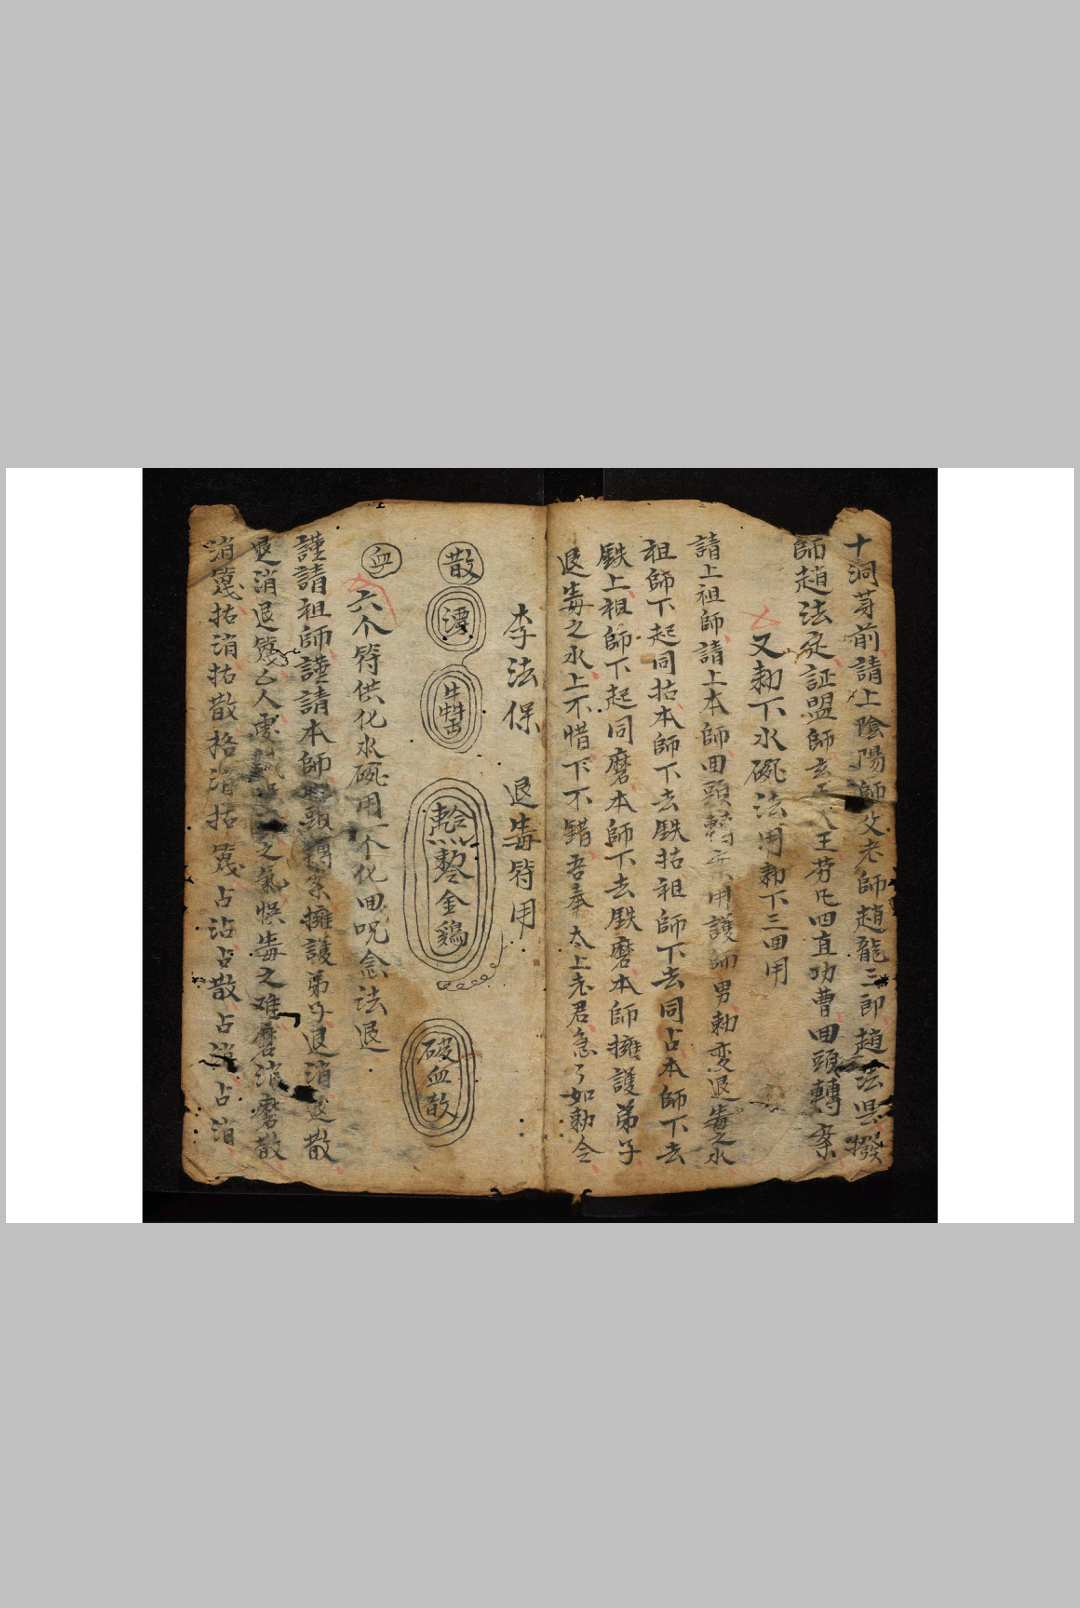 十洞芽前請上陰陽師父老師趙龍三郎趙法
師趙法定証盟師玄 王芽 四直功曹回頭轉案
又勅下水碗法用勅下三回用
請上祖師請上本師回頭轉案用護師男勅变退毒之水
祖師下起同拈本師下去鉄拈祖師下去同占本師下去
鉄上祖師下起同磨本師下去鉄磨本師擁護弟子
退毒之水上不惜下不錯吾奉太上老君急了如勅令
李法保 退毒符用
散
金鷄
破血散
血
六个符供化水碗用一个化回呪念法退
謹請祖師謹請本師回頭轉案擁護弟子退消退散
退消退 亡人 之氣 毒之难磨消磨散
消 拈消拈散格消拈 占沾占散占消占消